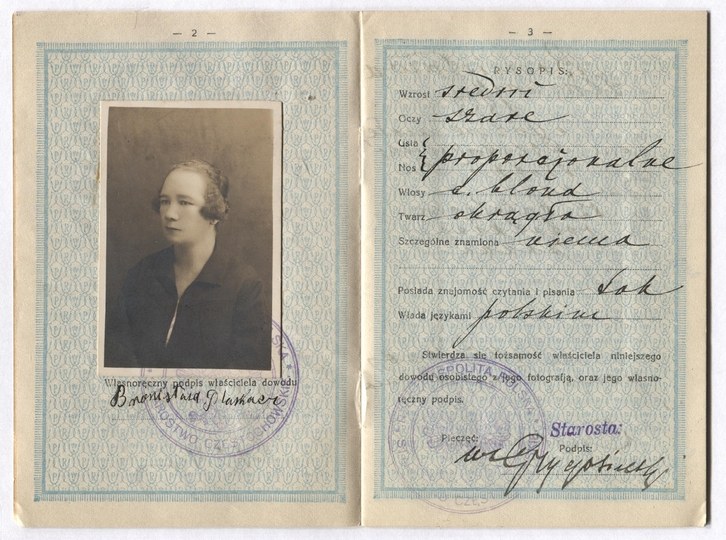 — 2 —
Własnoręczny podpis właściciela dowodu
STAROSTWO CZĘSTOCHOWSKIE
— 3 —
RYSOPIS:
Wzrost średni
Oczy szare
Usta
Nos proporcjonalne
Włosy c. blond
Twarz okrągła
Szczególne znamiona niema
Posiada znajomość czytania i pisania tak
Włada językami polskim
Stwierdza się tożsamość właściciela niniejszego
dowodu osobistego z jego fotografją, oraz jego własno-
ręczny podpis.
Starosta:
Pieczęć:
Podpis: